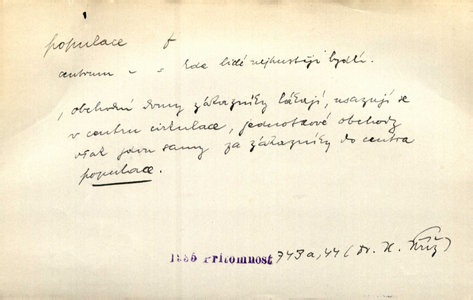 populace f
centrum – „ kde lidé nejhustěji bydlí.
, obchodní domy zákazníky lákají, usazují se
v centru cirkulace, jednotkové obchody
však jdou samy za zákazníky do centra
populace.
1935 Přítomnost 743a,44 (Dr. H. Kříž)